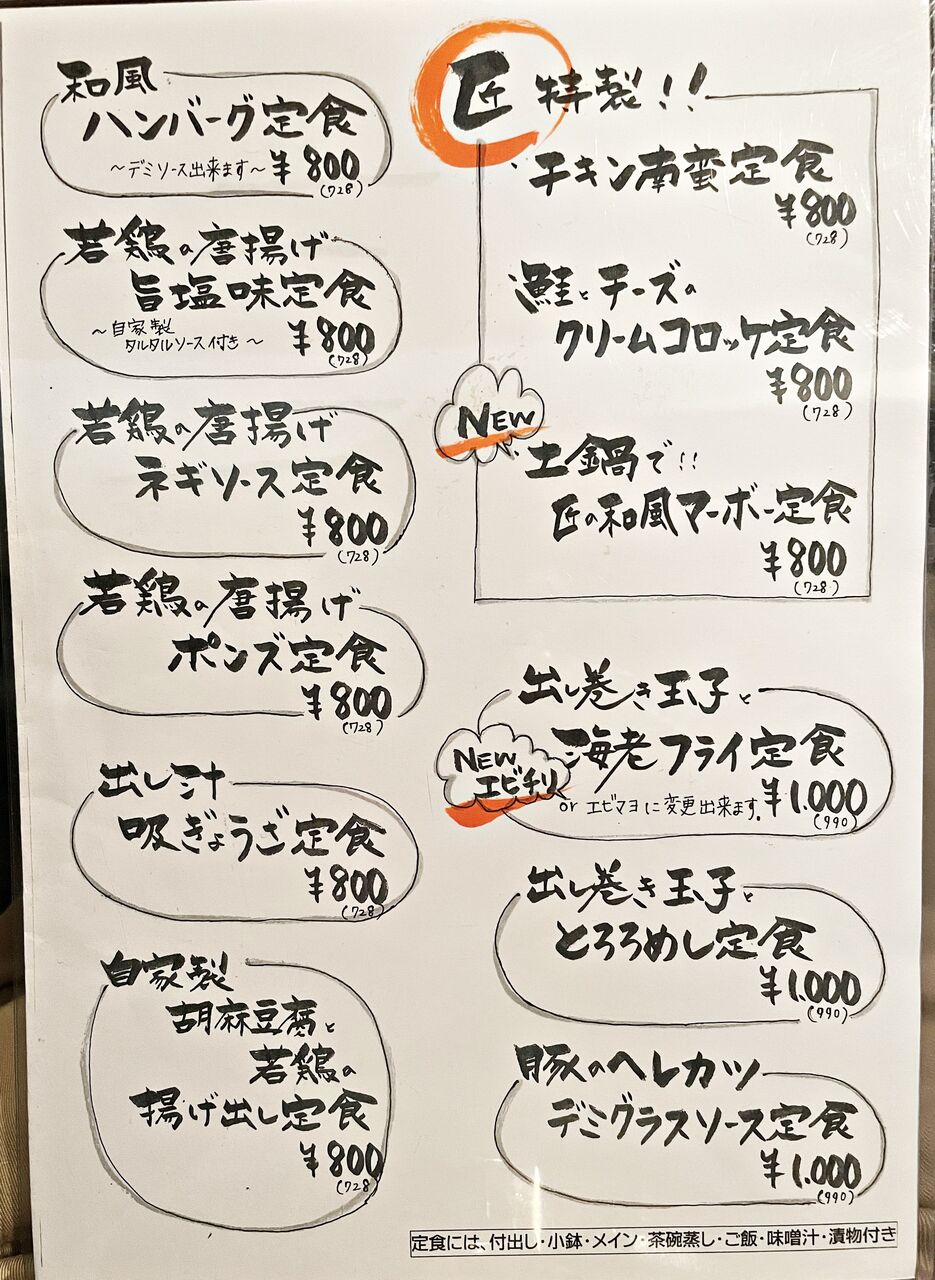 和風
ハンバーグ定食
～デミソース出来ます～ ¥800
(728)
若鶏の唐揚げ
旨塩味定食
～自家製
タルタルソース付き～ ¥800
(728)
若鶏の唐揚げ
ネギソース定食
¥800
(728)
若鶏の唐揚げ
ポンズ定食
¥800
(728)
出し汁
吸ぎょうざ定食
¥800
(728)
自家製
胡麻豆腐と
若鶏の
揚げ出し定食
¥800
(728)
匠 特製!!
チキン南蛮定食
¥800
(728)
鮭とチーズの
クリームコロッケ定食
¥800
(728)
NEW
土鍋で!!
匠の和風マーボー定食
¥800
(728)
出し巻き玉子と
海老フライ定食
NEW
エビチリ
or エビマヨに変更出来ます。 ¥1.000
(990)
出し巻き玉子と
とろろめし定食
¥1.000
(990)
豚のヘレカツ
デミグラスソース定食
¥1.000
(990)
定食には、付出し・小鉢・メイン・茶碗蒸し・ご飯・味噌汁・漬物付き